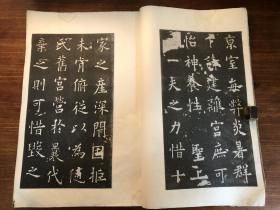 京室每弊炎暑群
下請建離宮庶可
怡神養性聖上
一夫之力惜十
家之產深閉固拒
未肯俯從以為隨
氏舊宮營於曩代
棄之則可惜毀之